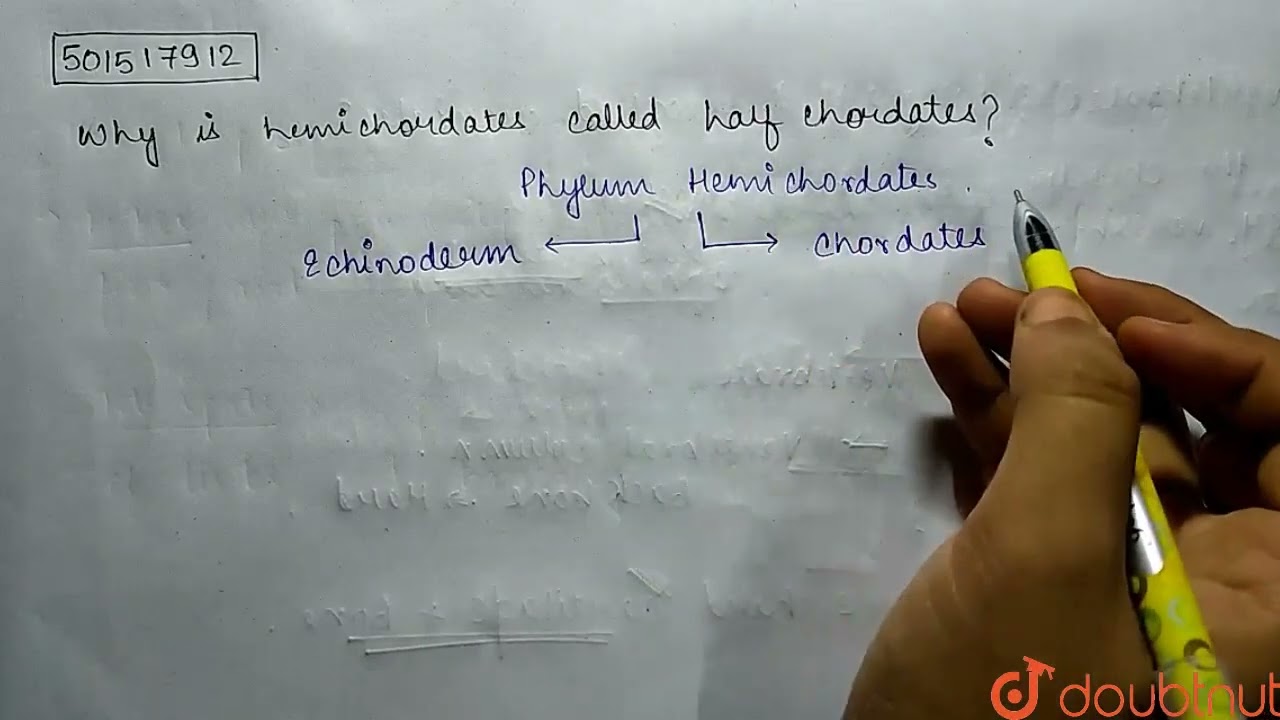 501517912
Why is hemichordates called half chordates?
Phylum Hemichordates.
Echinoderm
chordates
doubtnut